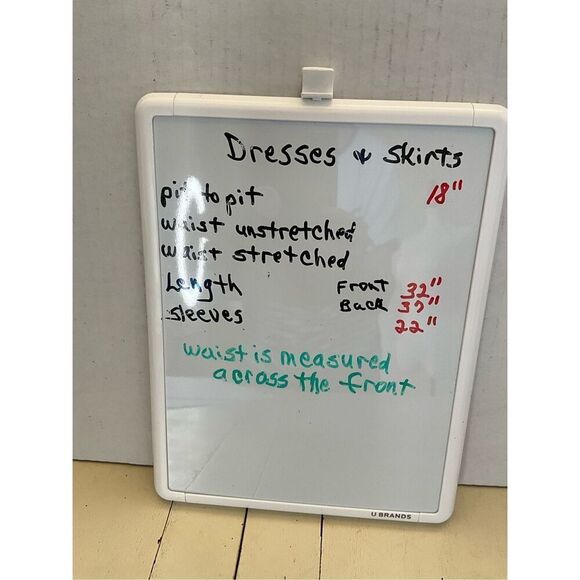 Dresses & Skirts
pit to pit 18"
waist unstretched
waist stretched
Length Front 32"
Back 37"
sleeves 22"
waist is measured
across the front
U BRANDS